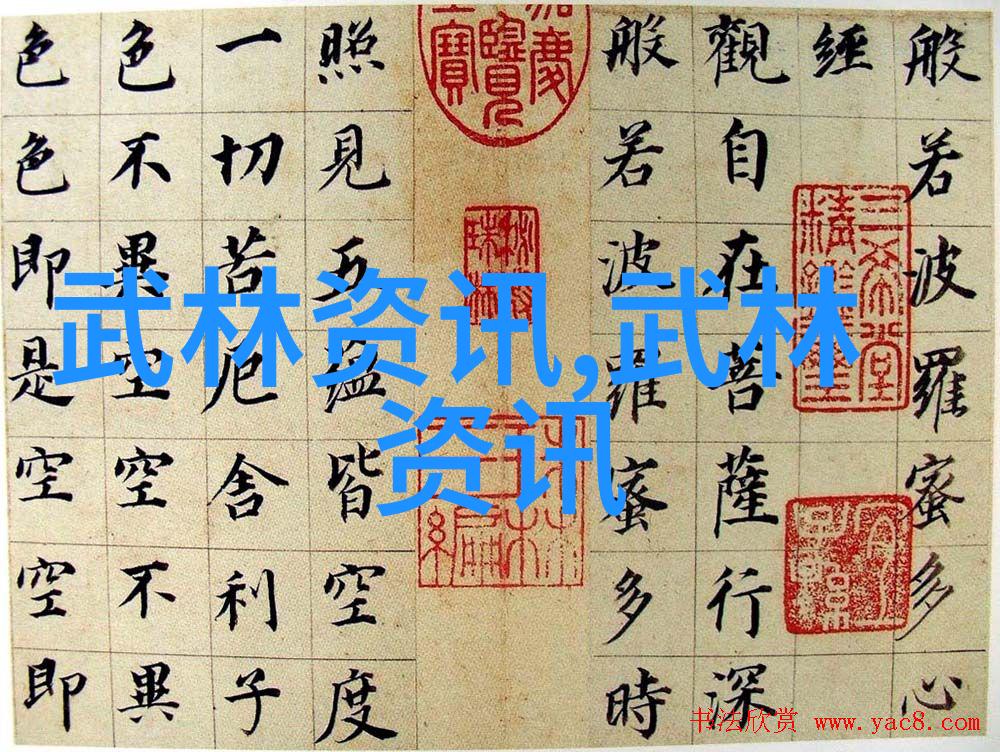 般若波羅蜜多心
經
觀自在菩薩行深
般若波羅蜜多時
照見五蘊皆空度
一切苦厄舍利子
色不異空空不異
色色即是空空即
三希堂精鑑璽
武林资讯,武林
资讯
书法欣赏 www.yac8.com